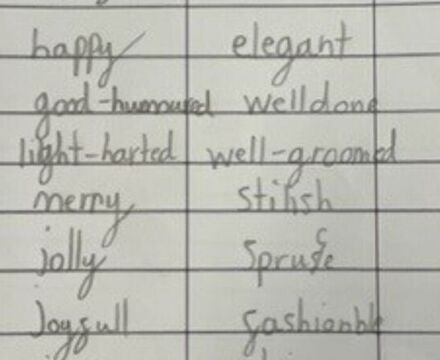 happy elegant
good-humoured welldone
light-harted well-groomed
merry stilish
jolly spruce
Joyfull fashionble